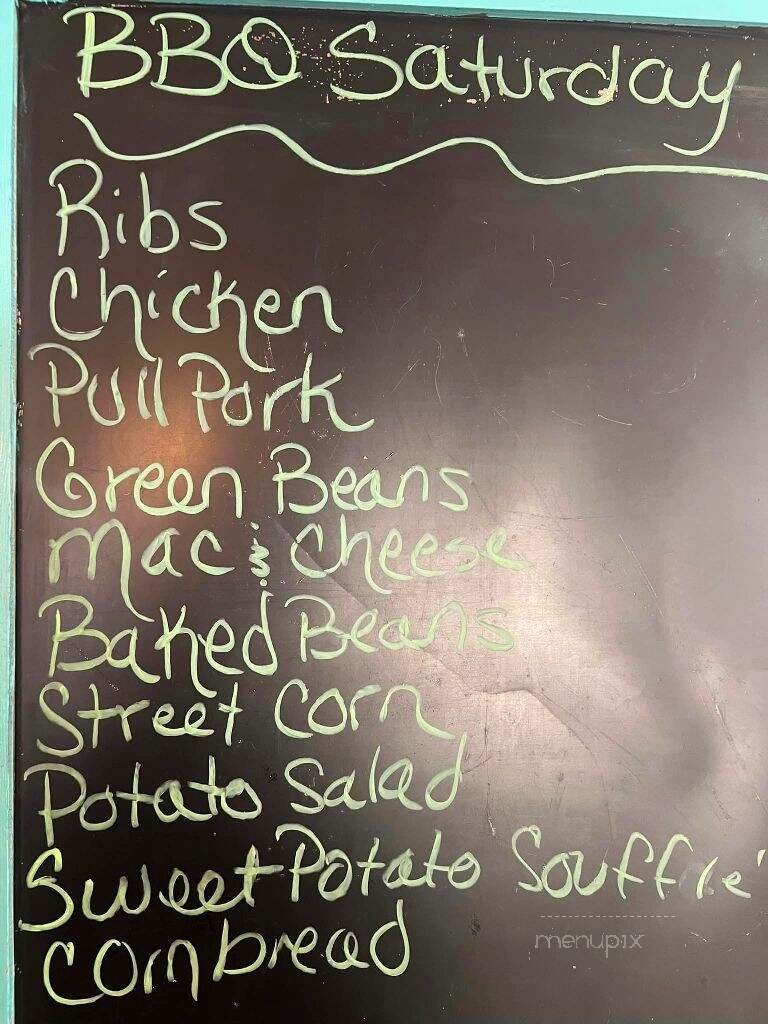 BBQ Saturday
Ribs
Chicken
Pull Pork
Green Beans
Mac & Cheese
Baked Beans
Street Corn
Potato Salad
Sweet Potato Souffle'
Cornbread
menupix